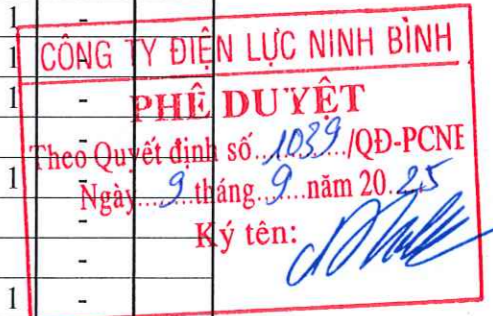 1 -
1 CÔNG TY ĐIỆN LỰC NINH BÌNH
1 -
PHÊ DUYỆT
-
Theo Quyết định số 1039 /QĐ-PCNB
1 -
Ngày 9 tháng 9 năm 20 25
-
Ký tên:
-
1 -